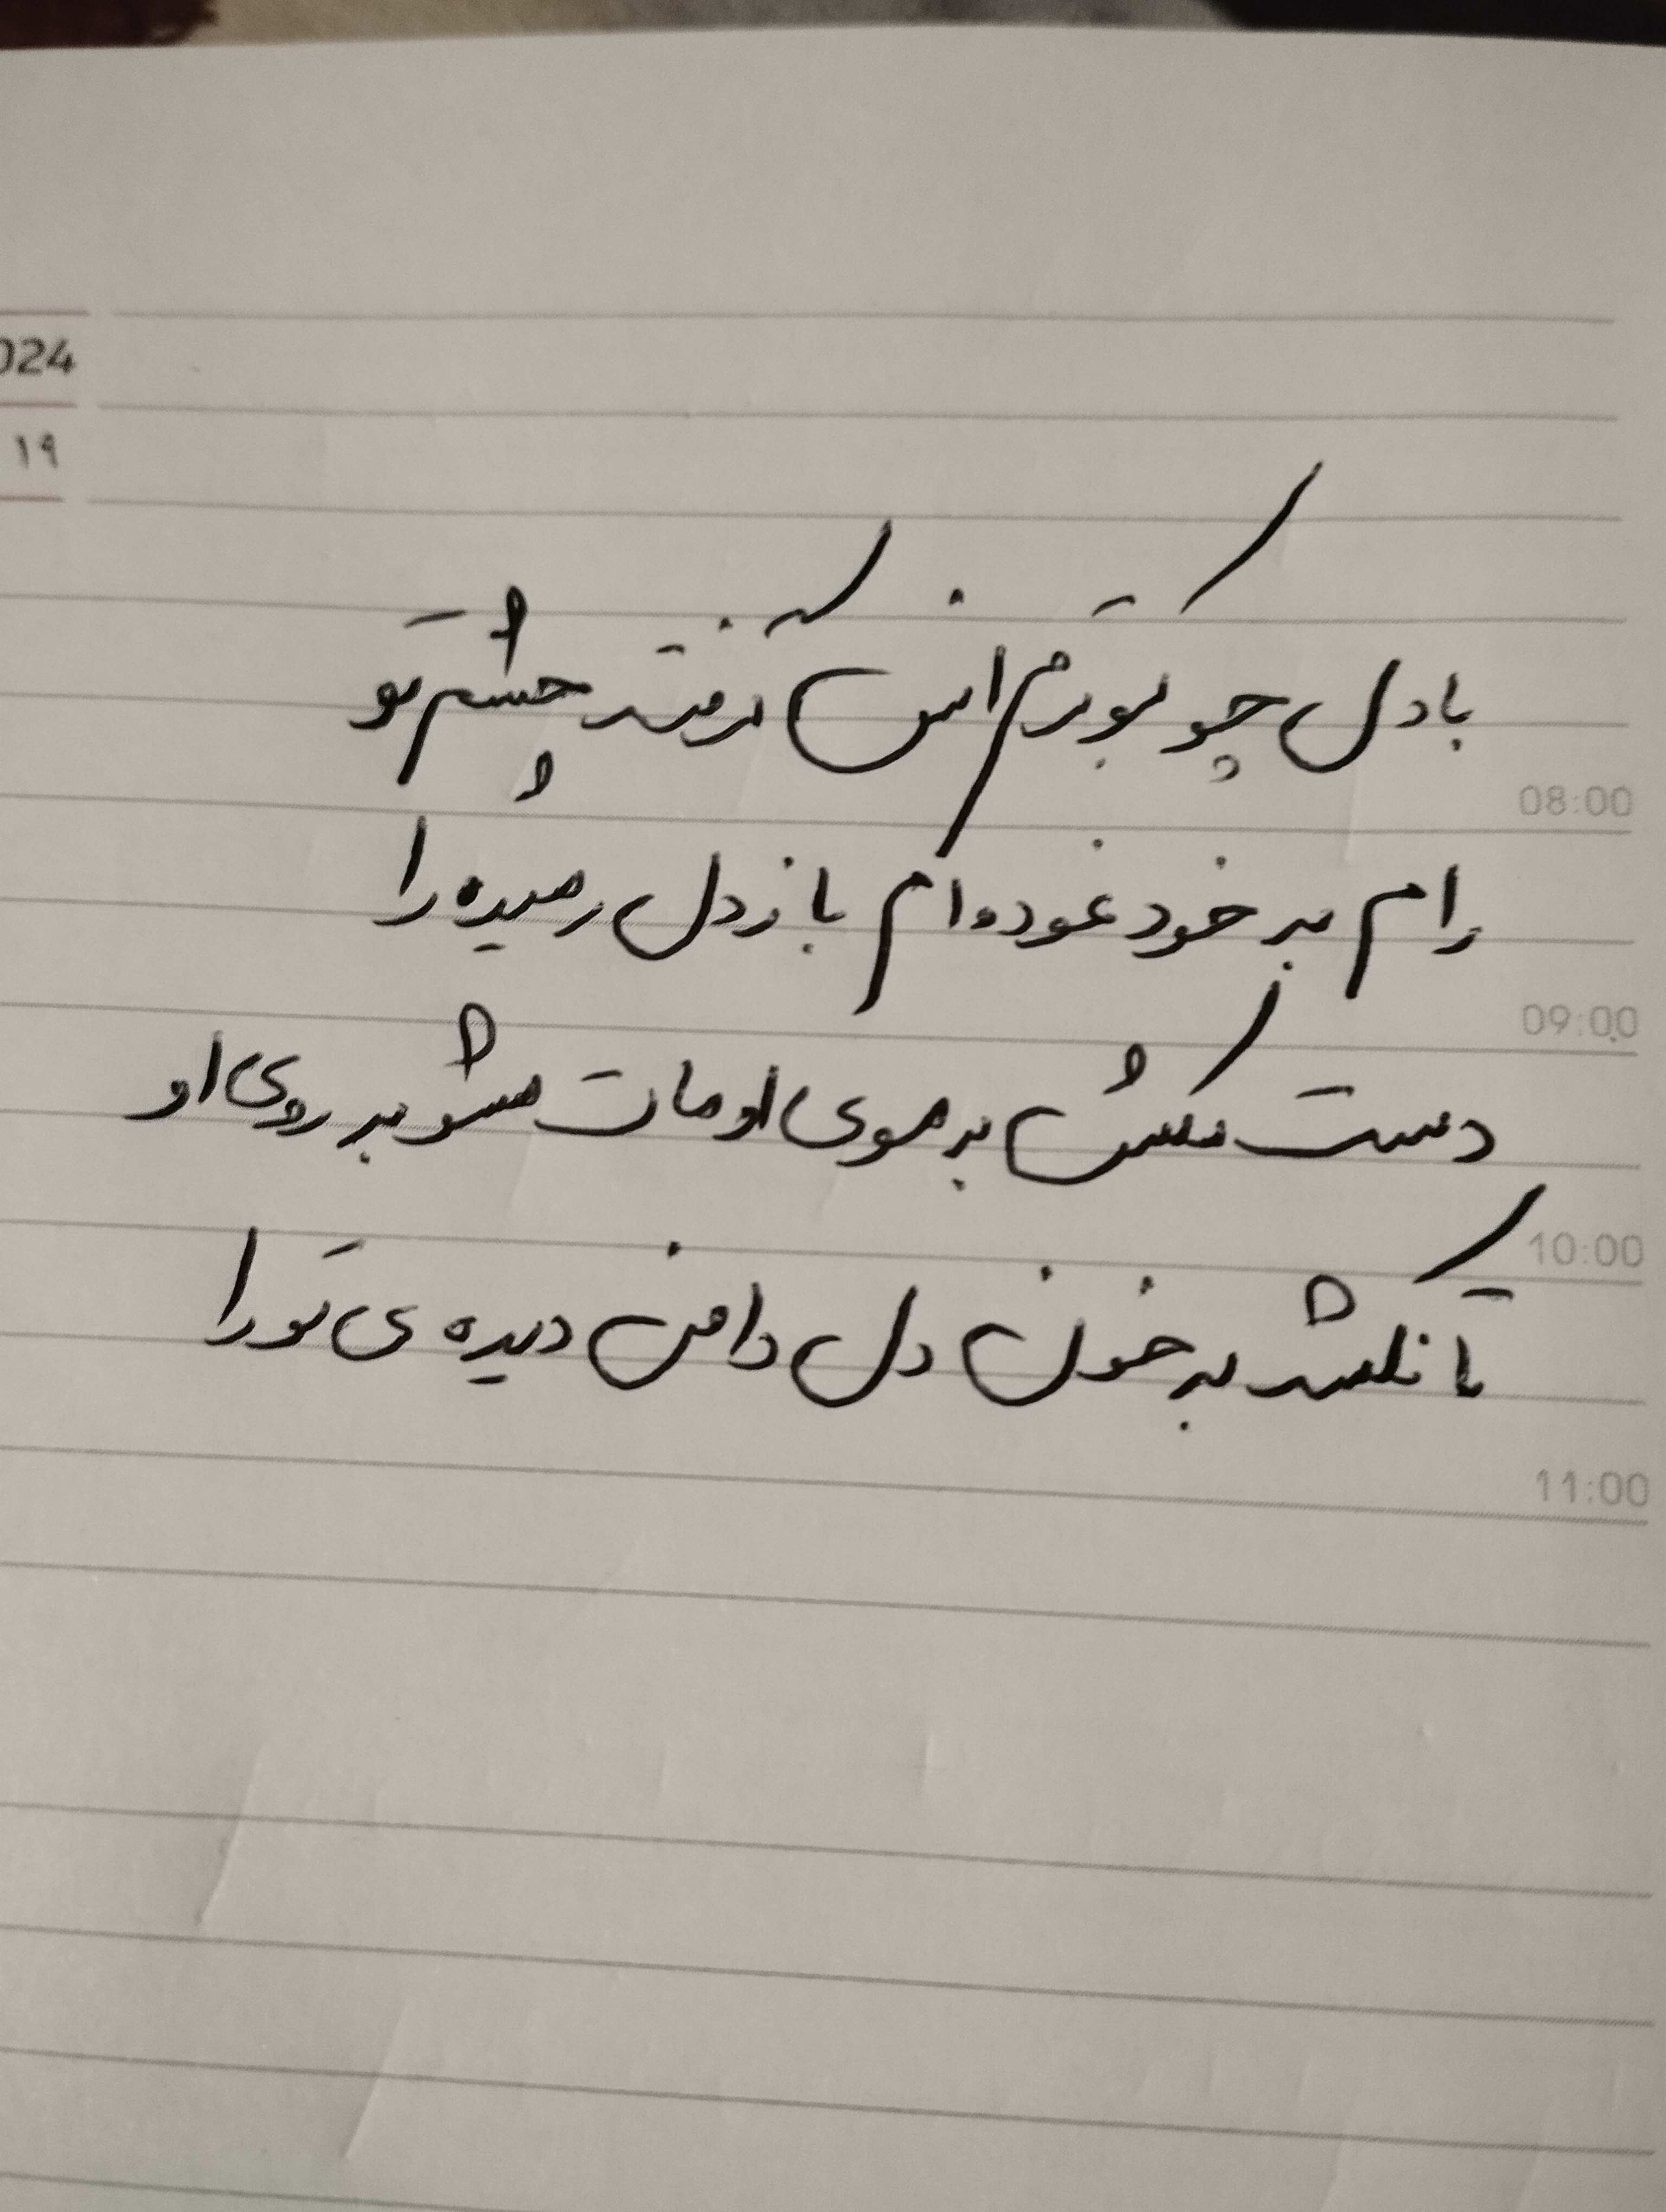 024
۱۹
با دل چو کبوترم انس گرفته چشم تو
رام به خود نموده‌ام باز دل رمیده را
08:00
دست مکش به موی او مات مشو به روی او
09:00
تا نکشد به خون دل دامن دیده ی تو را
10:00
11:00